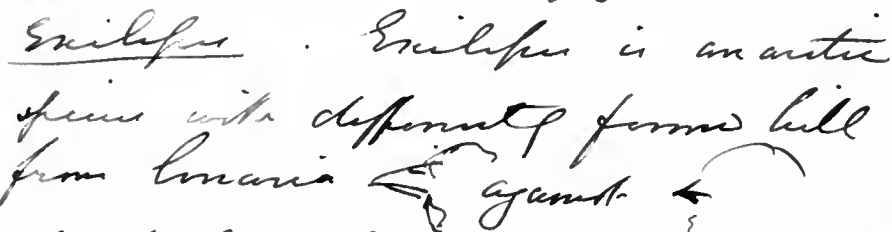 Exilipes. Exilipes is an arctic
species with differently formed bill
from linaria against